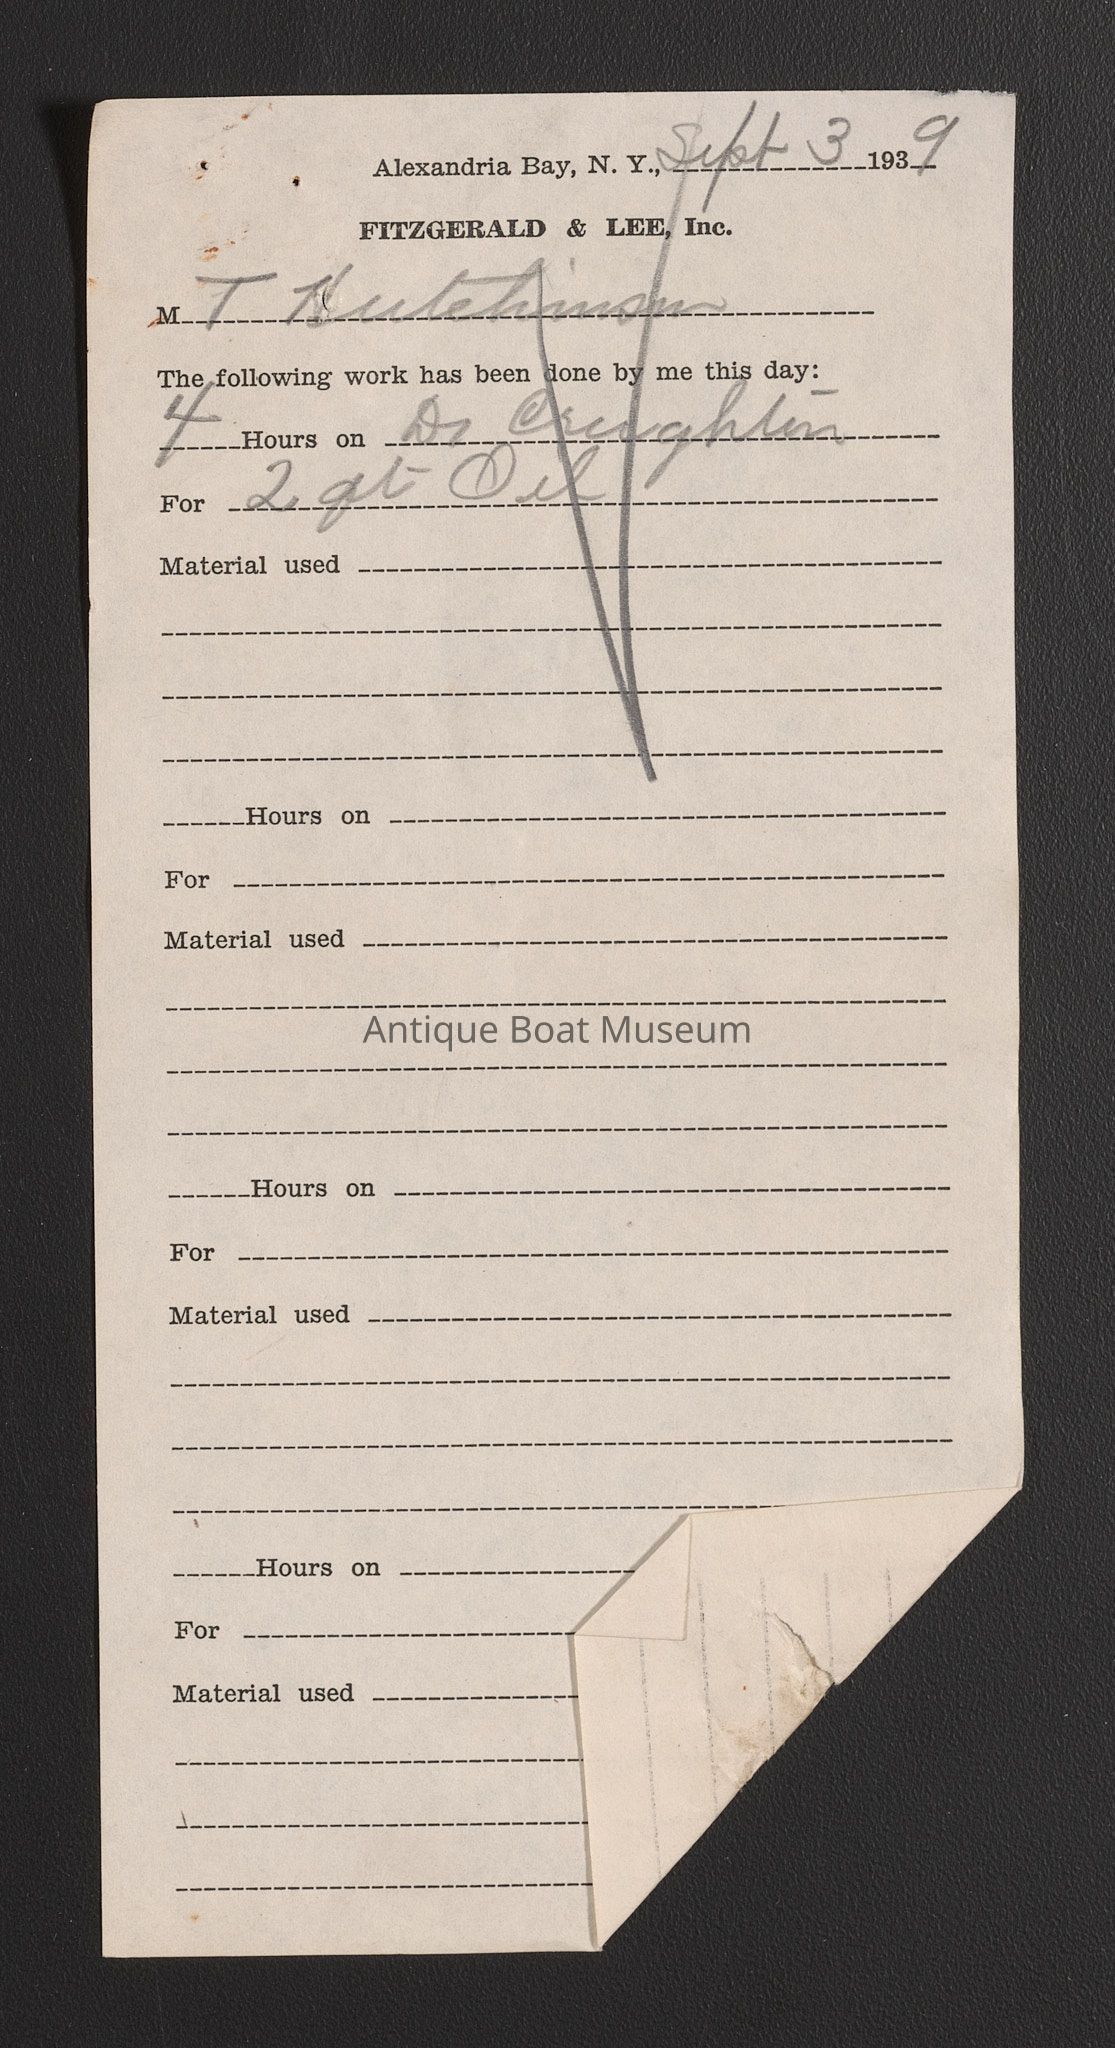 Alexandria Bay, N. Y., Sept 3 1939
FITZGERALD & LEE, Inc.
M T Hutchinson
The following work has been done by me this day:
4 Hours on Dr Creighton
For 2 qt Oil
Material used
Hours on
For
Material used
Antique Boat Museum
Hours on
For
Material used
Hours on
For
Material used